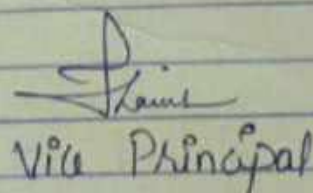 Vice Principal